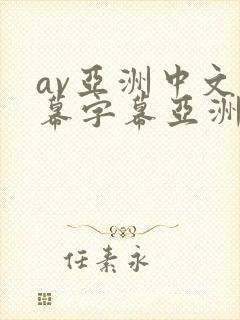 av亞洲中文
幕字幕亞洲
任素永